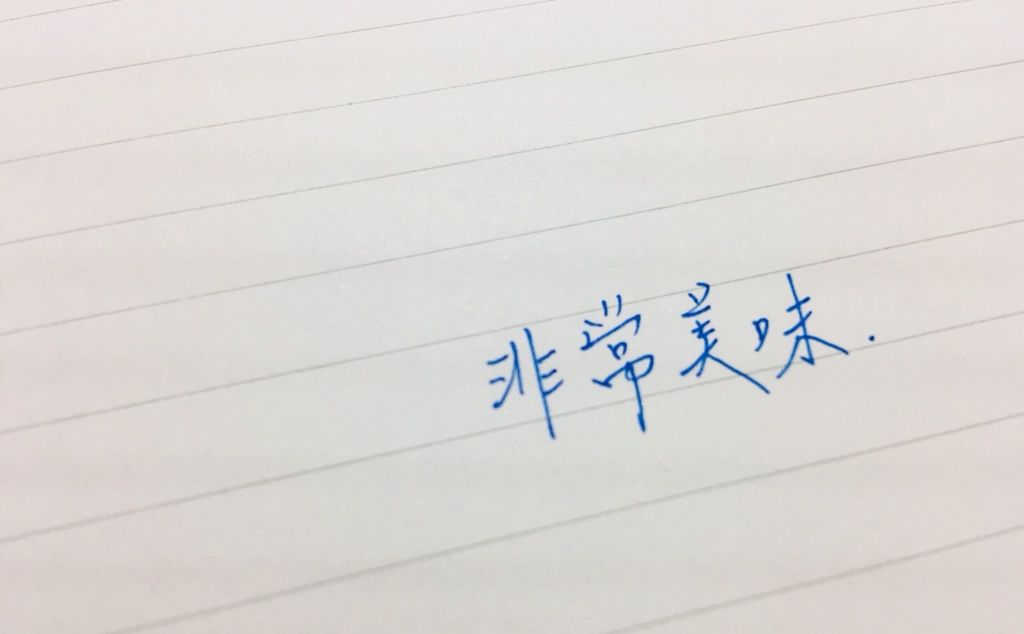 非常美味.